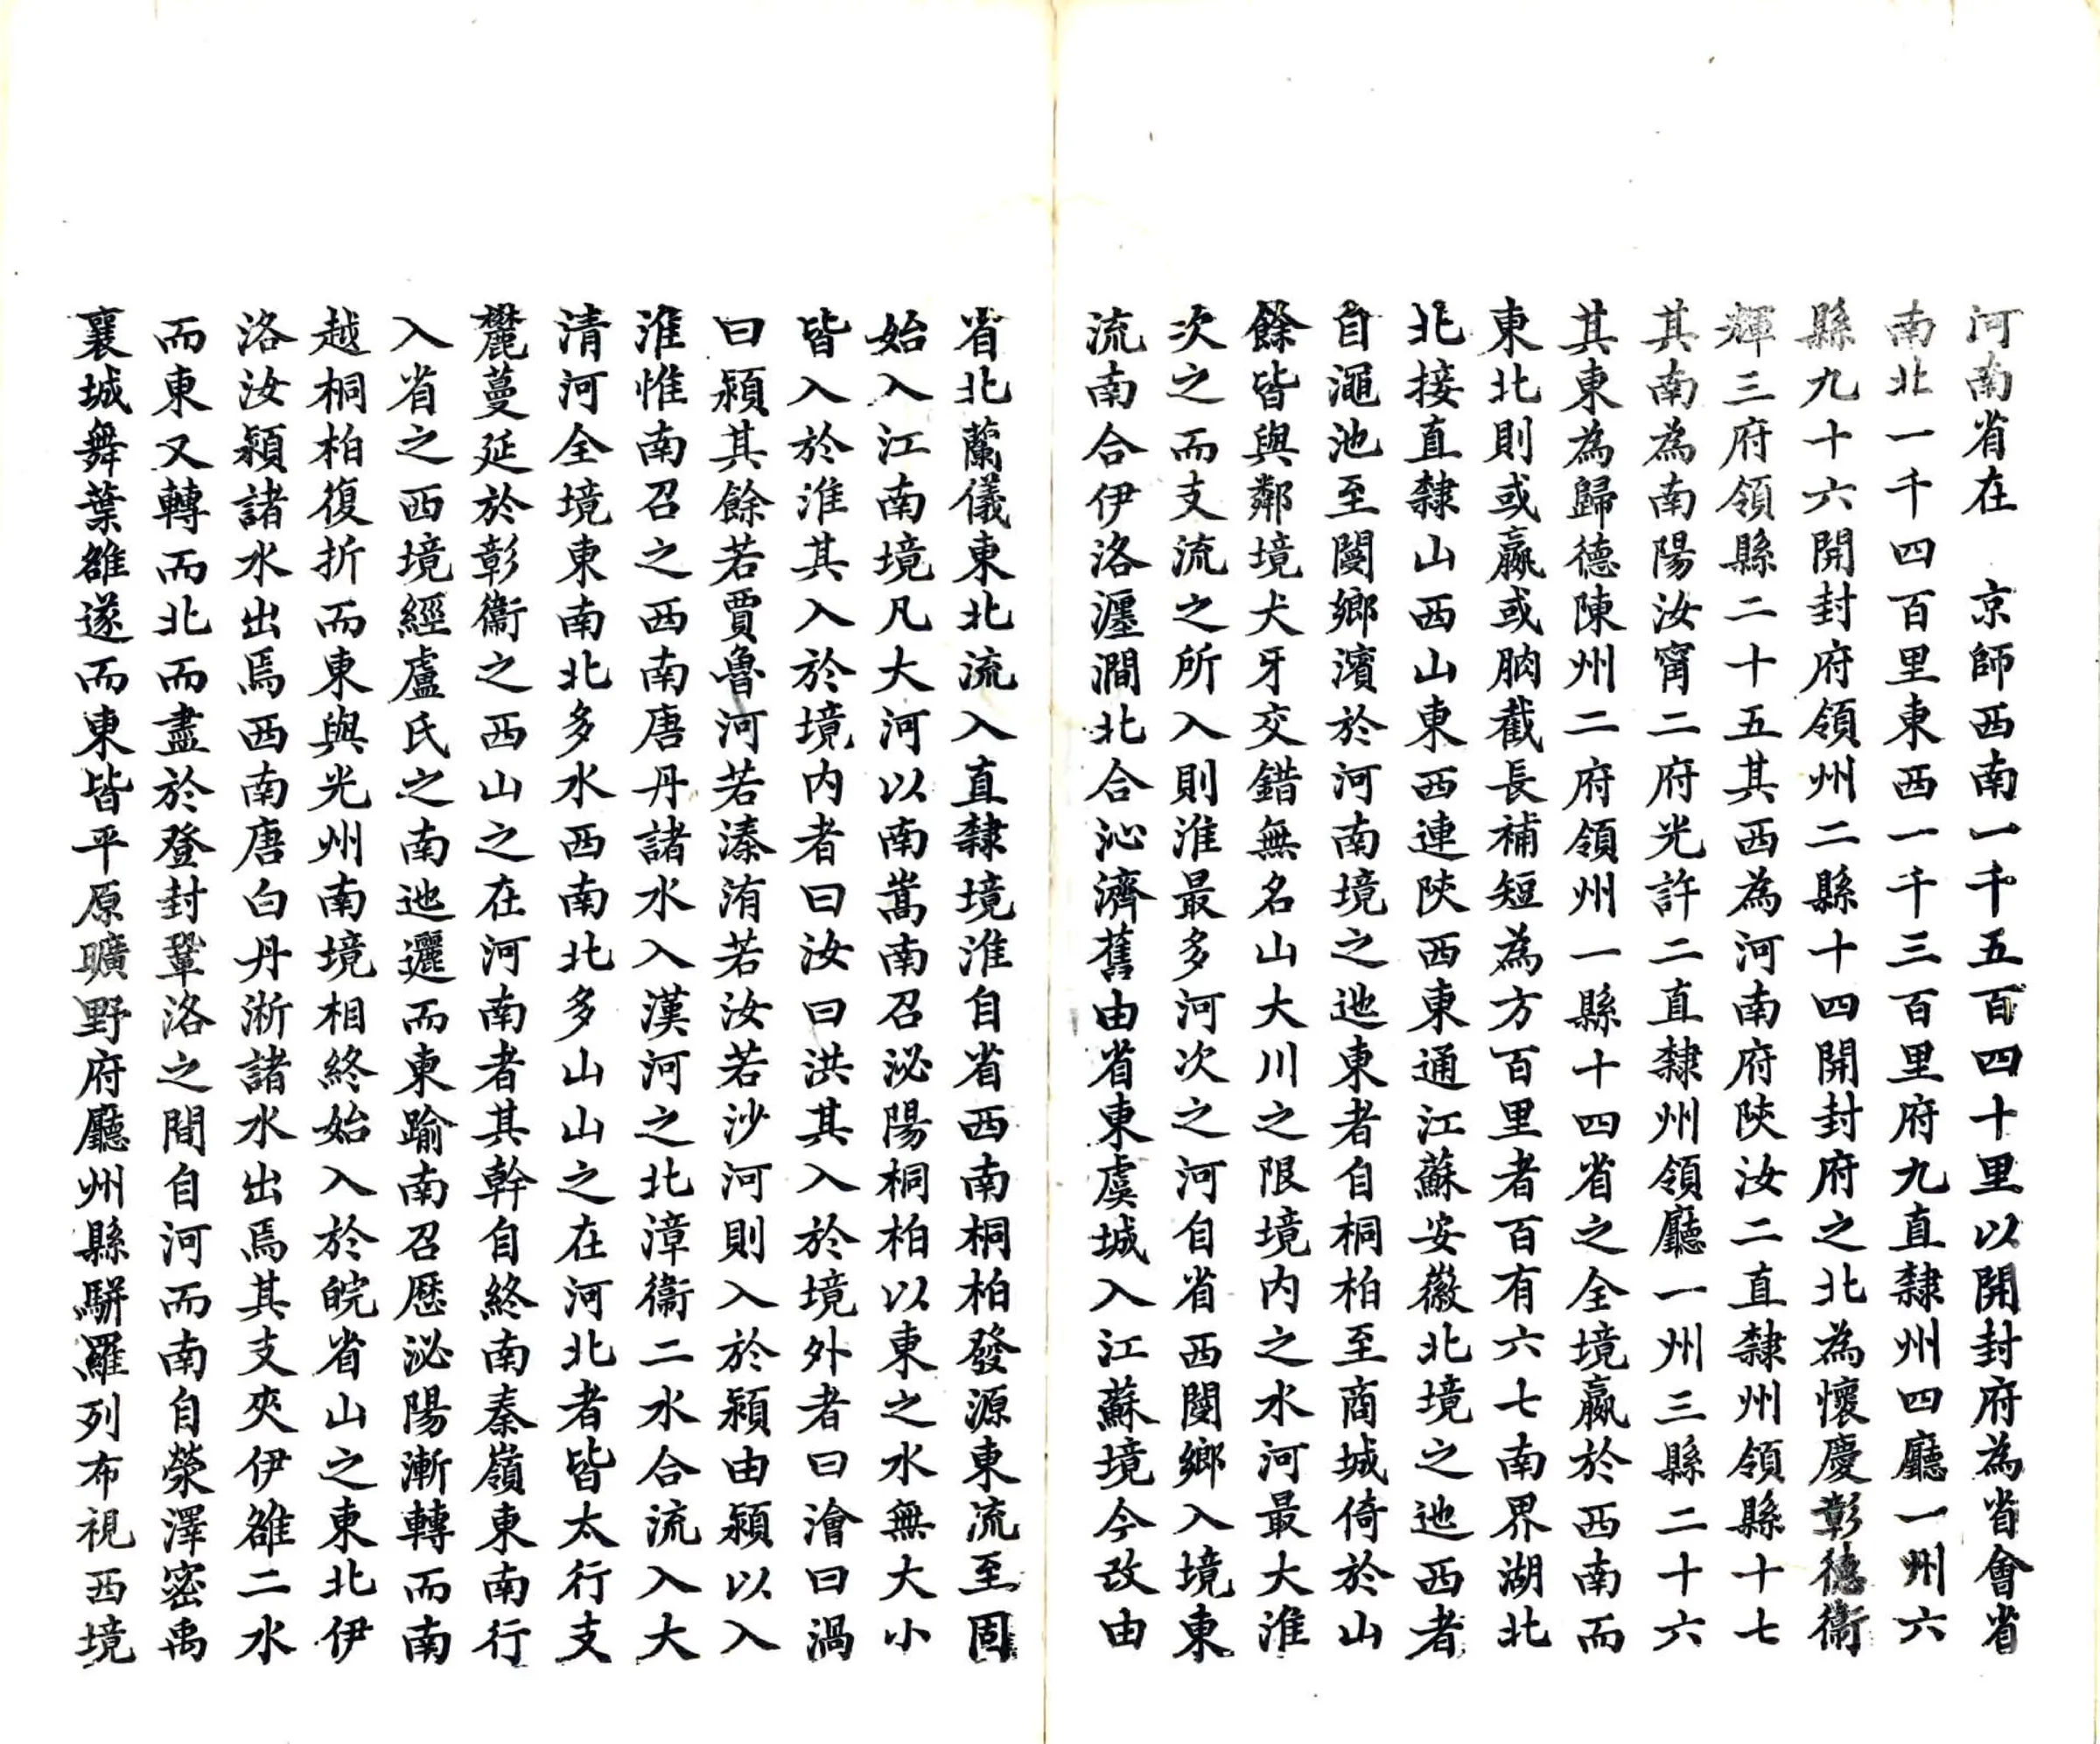 河南省在　京師西南一千五百四十里以開封府為省會省
南北一千四百里東西一千三百里府九直隸州四廳一州六
縣九十六開封府領州二縣十四開封府之北為懷慶彰德衞
輝三府領縣二十五其西為河南府陝汝二直隸州領縣十七
其南為南陽汝甯二府光許二直隸州領廳一州三縣二十六
其東為歸德陳州二府領州一縣十四省之全境嬴於西南而
東北則或嬴或朒截長補短為方百里者百有六七南界湖北
北接直隸山西山東西連陝西東通江蘇安徽北境之迆西者
自澠池至閿鄉濱於河南境之迆東者自桐柏至商城倚於山
餘皆與鄰境犬牙交錯無名山大川之限境內之水河最大淮
次之而支流之所入則淮最多河次之河自省西閿鄉入境東
流南合伊洛瀍澗北合沁濟舊由省東虞城入江蘇境今改由
省北蘭儀東北流入直隸境淮自省西南桐柏發源東流至固
始入江南境凡大河以南嵩南召泌陽桐柏以東之水無大小
皆入於淮其入於境內者曰汝曰洪其入於境外者曰澮曰渦
曰潁其餘若賈魯河若溱洧若汝若沙河則入於潁由潁以入
淮惟南召之西南唐丹諸水入漢河之北漳衞二水合流入大
清河全境東南北多水西南北多山山之在河北者皆太行支
麓蔓延於彰衞之西山之在河南者其幹自終南秦嶺東南行
入省之西境經盧氏之南迆邐而東踰南召歷泌陽漸轉而南
越桐柏復折而東與光州南境相終始入於皖省山之東北伊
洛汝潁諸水出焉西南唐白丹淅諸水出焉其支夾伊雒二水
而東又轉而北而盡於登封鞏洛之間自河而南自滎澤密禹
襄城舞葉雒遂而東皆平原曠野府廳州縣駢羅列布視西境